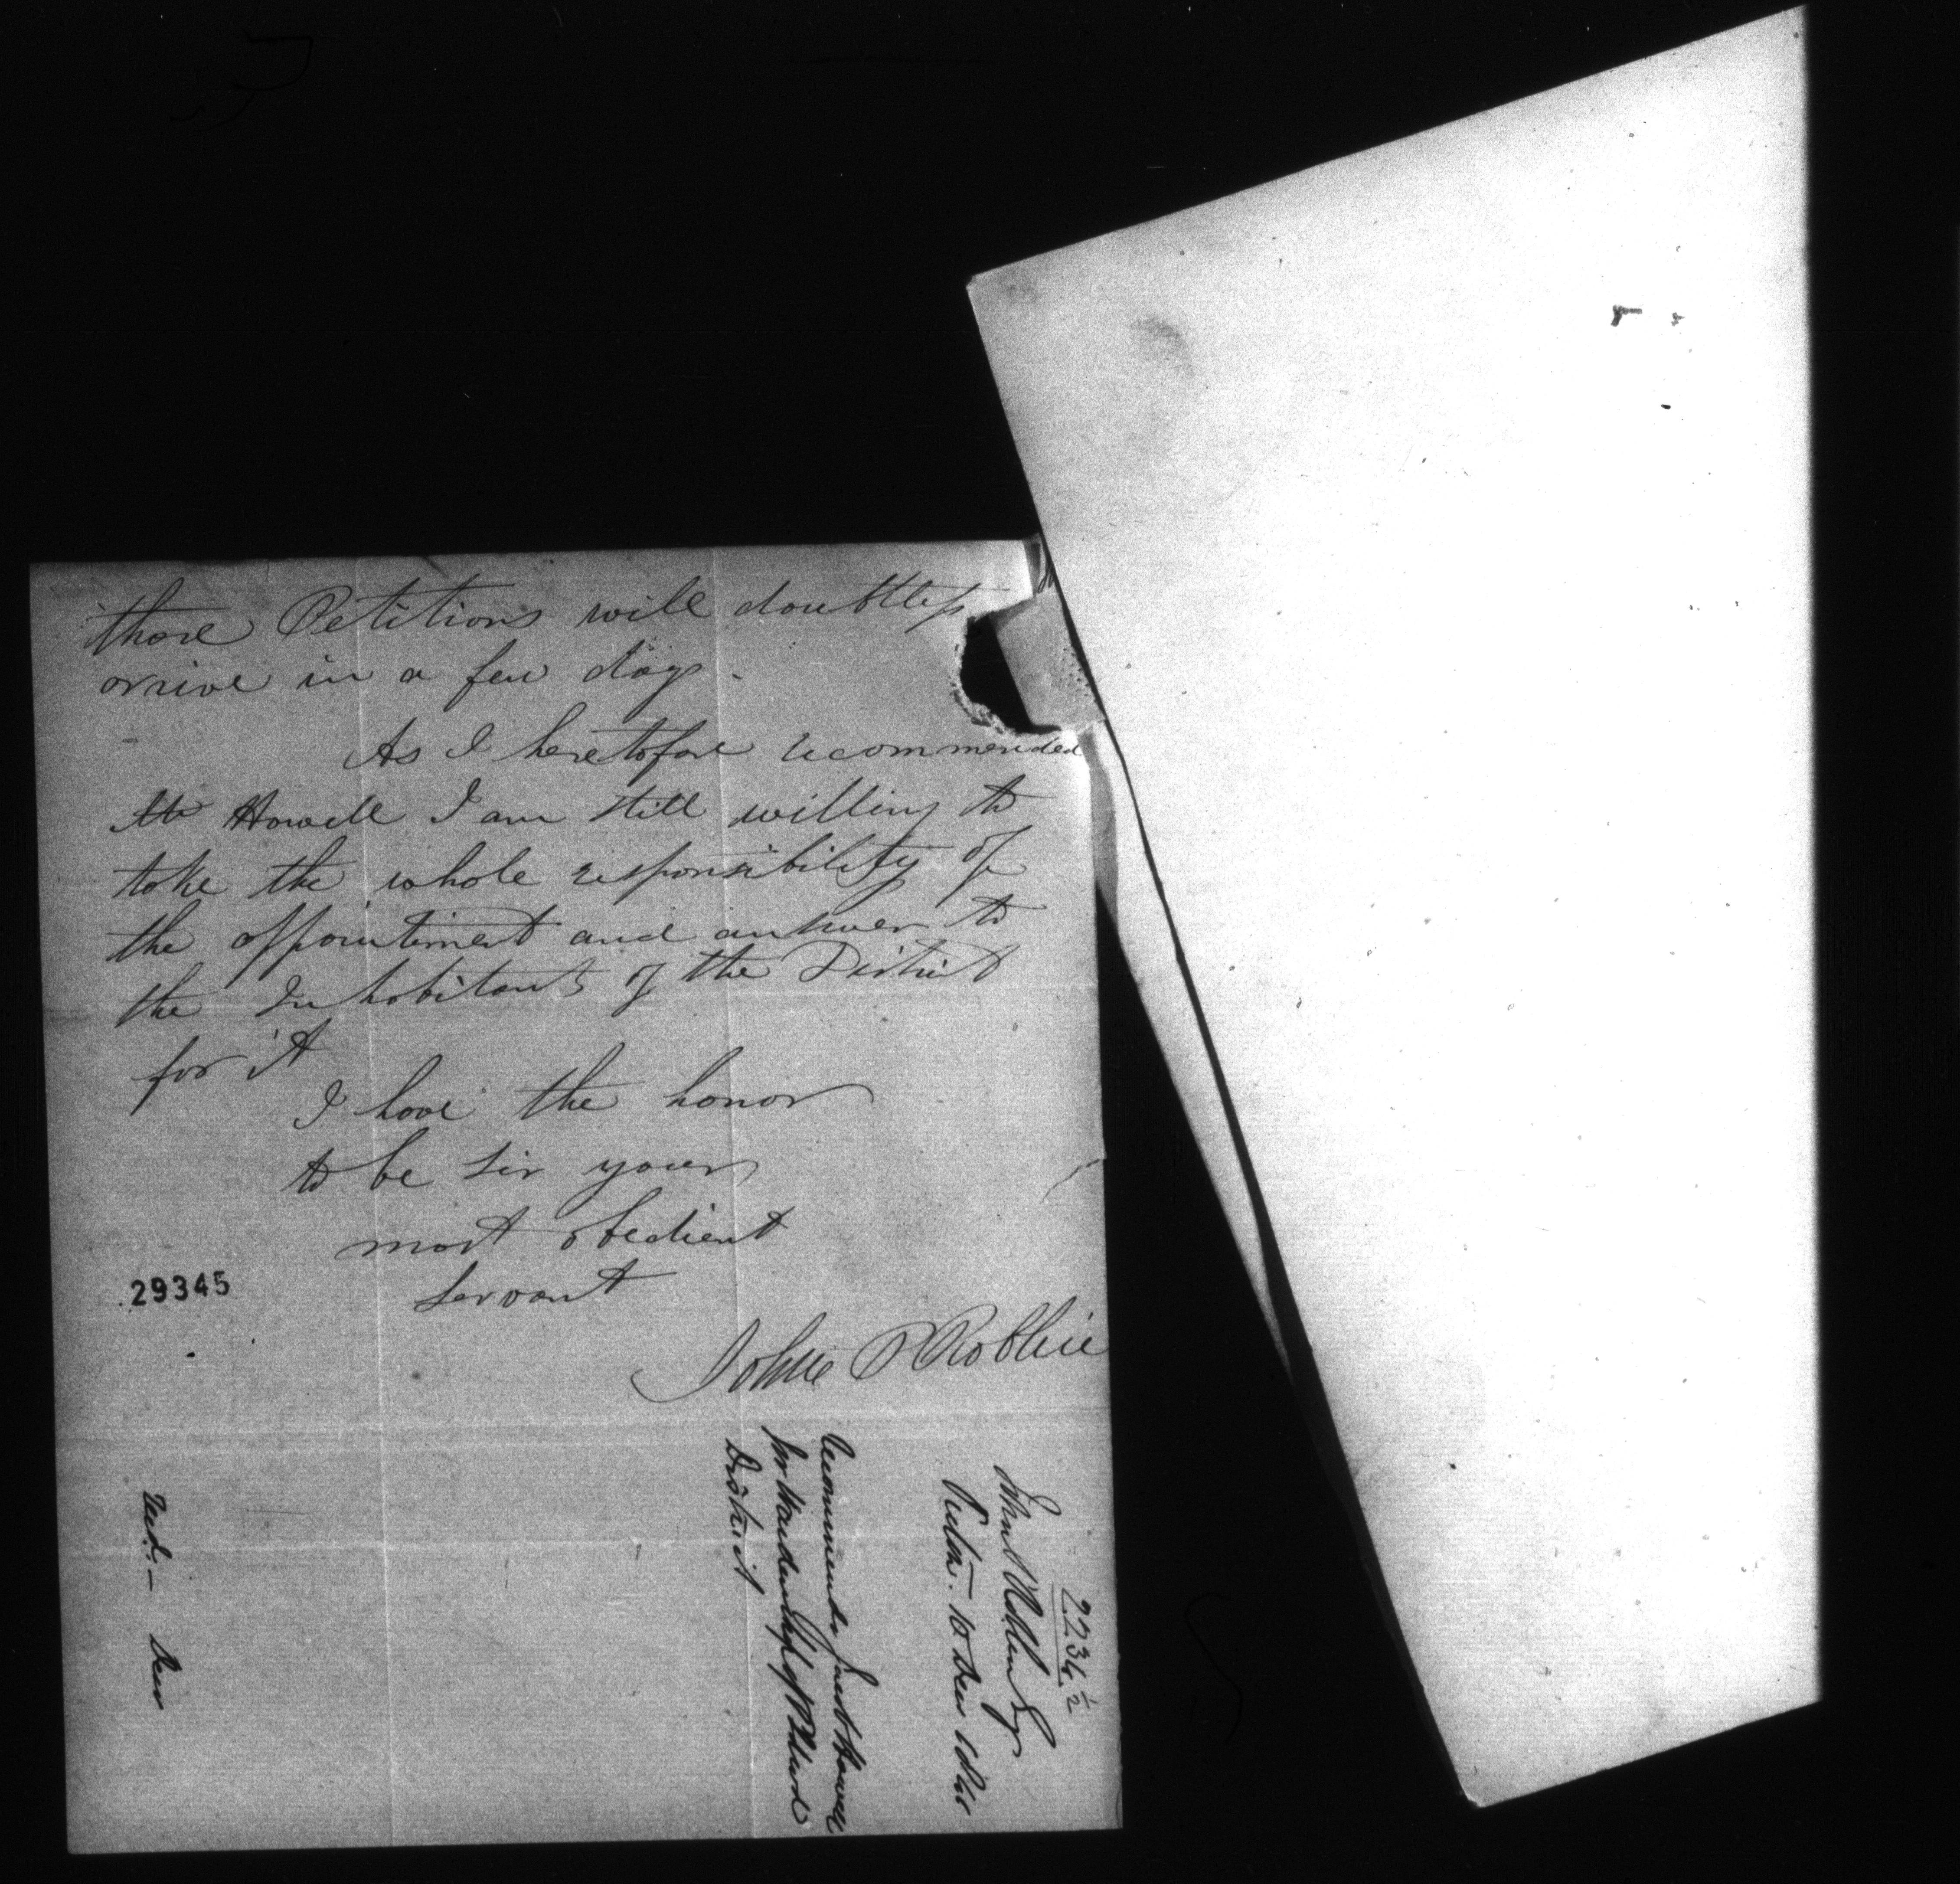 those Petitions will doubtless
arrive in a few days.
As I heretofore recommended
Mr Howell I am still willing to
take the whole responsibility of
the appointment and answer to
the Inhabitants of the District
for it
I have the honor
to be Sir your
most obedient
Servant
29345
John P Roblin
2234 1/2
John P Roblin Esqr
Picton. 10 Decr
Recommends Howell
for Wardenship of P. Edward
District
Decr